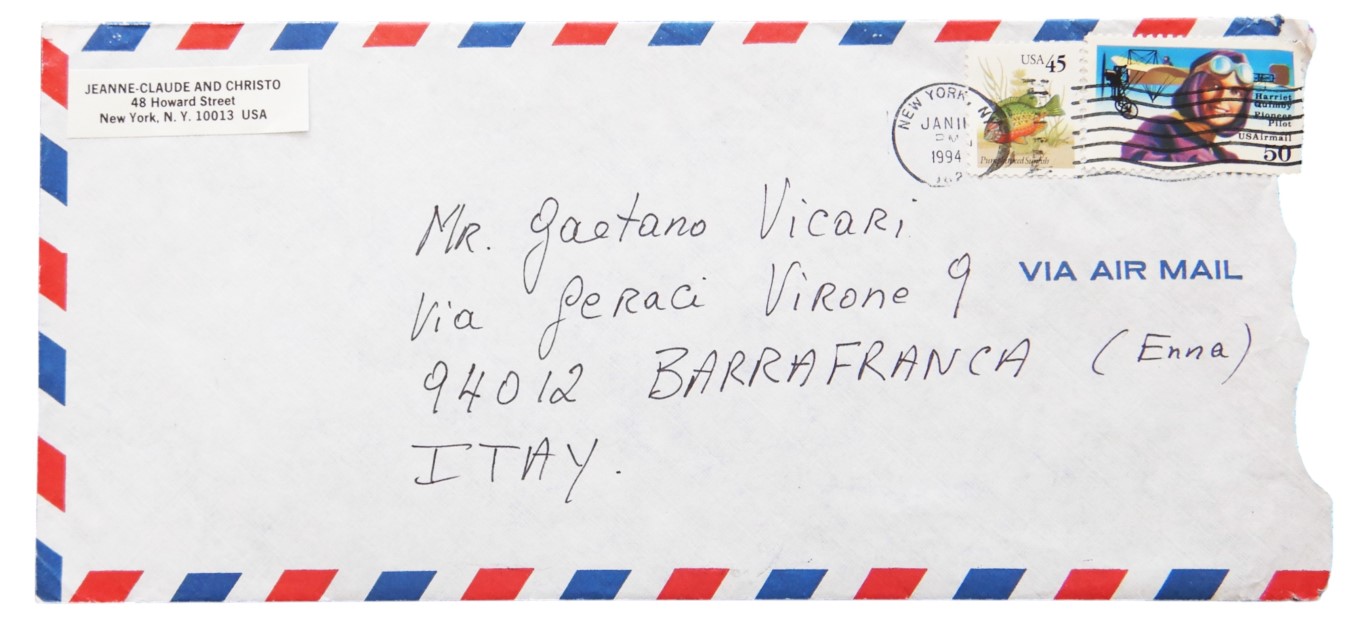 JEANNE-CLAUDE AND CHRISTO
48 Howard Street
New York, N. Y. 10013 USA
NEW YORK, NY
JAN 11
PM
1994
USA 45
Pumpkinseed Sunfish
Harriet
Quimby
Pioneer
Pilot
USAirmail
50
Mr. Gaetano Vicari
Via Geraci Virone 9
VIA AIR MAIL
94012 BARRAFRANCA (Enna)
ITAY.